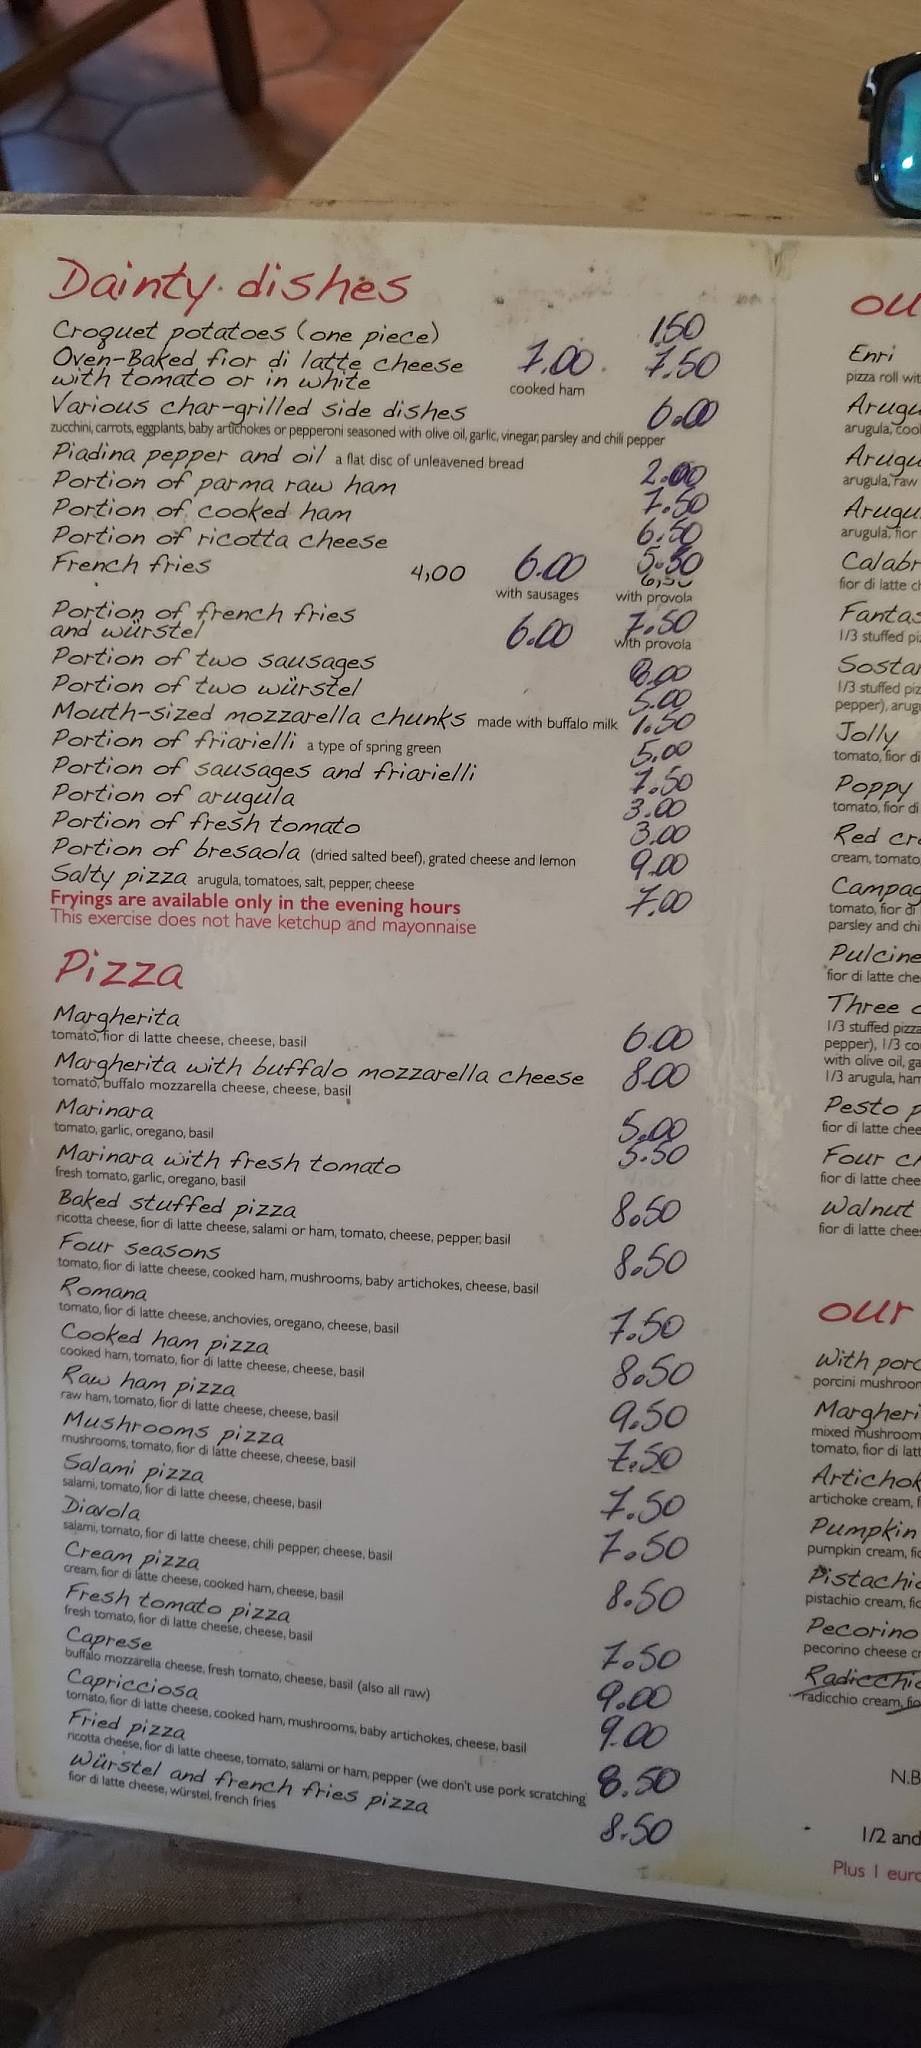 Dainty dishes
Croquet potatoes (one piece) 1.50
Oven-Baked fior di latte cheese 7.00 7.50
with tomato or in white cooked ham
Various char-grilled side dishes 6.00
zucchini, carrots, eggplants, baby artichokes or pepperoni seasoned with olive oil, garlic, vinegar, parsley and chili pepper
Piadina pepper and oil a flat disc of unleavened bread 2.00
Portion of parma raw ham 7.50
Portion of cooked ham 6.50
Portion of ricotta cheese 5.50
French fries 4,00 6.00 6,50
with sausages with provola
Portion of french fries 7.50
and würstel 6.00 with provola
Portion of two sausages 8.00
Portion of two würstel 5.00
Mouth-sized mozzarella chunks made with buffalo milk 1.50
Portion of friarielli a type of spring green 5.00
Portion of sausages and friarielli 7.50
Portion of arugula 3.00
Portion of fresh tomato 3.00
Portion of bresaola (dried salted beef), grated cheese and lemon 9.00
Salty pizza arugula, tomatoes, salt, pepper, cheese 7.00
Fryings are available only in the evening hours
This exercise does not have ketchup and mayonnaise
Pizza
Margherita 6.00
tomato, fior di latte cheese, cheese, basil
Margherita with buffalo mozzarella cheese 8.00
tomato, buffalo mozzarella cheese, cheese, basil
Marinara 5.00
tomato, garlic, oregano, basil
Marinara with fresh tomato 5.50
fresh tomato, garlic, oregano, basil
Baked stuffed pizza 8.50
ricotta cheese, fior di latte cheese, salami or ham, tomato, cheese, pepper, basil
Four seasons 8.50
tomato, fior di latte cheese, cooked ham, mushrooms, baby artichokes, cheese, basil
Romana 7.50
tomato, fior di latte cheese, anchovies, oregano, cheese, basil
Cooked ham pizza 8.50
cooked ham, tomato, fior di latte cheese, cheese, basil
Raw ham pizza 9.50
raw ham, tomato, fior di latte cheese, cheese, basil
Mushrooms pizza 7.50
mushrooms, tomato, fior di latte cheese, cheese, basil
Salami pizza 7.50
salami, tomato, fior di latte cheese, cheese, basil
Diavola 7.50
salami, tomato, fior di latte cheese, chili pepper, cheese, basil
Cream pizza 8.50
cream, fior di latte cheese, cooked ham, cheese, basil
Fresh tomato pizza 7.50
fresh tomato, fior di latte cheese, cheese, basil
Caprese 9.00
buffalo mozzarella cheese, fresh tomato, cheese, basil (also all raw)
Capricciosa 9.00
tomato, fior di latte cheese, cooked ham, mushrooms, baby artichokes, cheese, basil
Fried pizza 8.50
ricotta cheese, fior di latte cheese, tomato, salami or ham, pepper (we don't use pork scratching
Würstel and french fries pizza 8.50
fior di latte cheese, würstel, french fries
ou
Enri
pizza roll wit
Arugu
arugula, coo
Arugu
arugula, raw
Arugu
arugula, fior
Calabr
fior di latte ch
Fantas
1/3 stuffed pi
Sosta
1/3 stuffed piz
pepper), arug
Jolly
tomato, fior di
Poppy
tomato, fior di
Red cr
cream, tomato
Campag
tomato, fior di
parsley and chi
Pulcine
fior di latte che
Three
1/3 stuffed pizza
pepper), 1/3 co
with olive oil, ga
1/3 arugula, ham
Pesto p
fior di latte chee
Four ch
fior di latte chee
Walnut
fior di latte chee
our
With porc
porcini mushroom
Margheri
mixed mushroom
tomato, fior di latt
Artichok
artichoke cream, f
Pumpkin
pumpkin cream, fio
Pistachio
pistachio cream, fio
Pecorino
pecorino cheese cr
Radicchio
radicchio cream, fio
N.B
1/2 and
Plus 1 euro